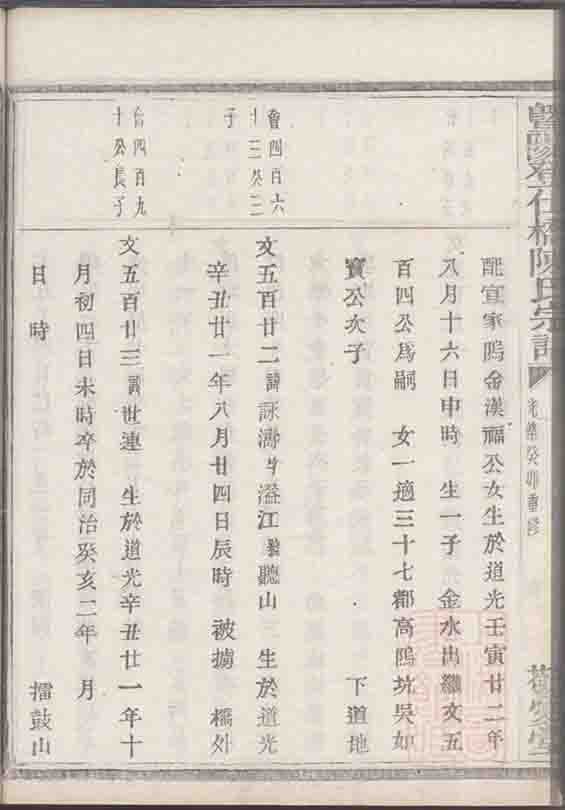 暨陽孝仁橋陳氏宗譜
光緒癸卯重修
配宣家鴿金漢福公女生於道光壬寅廿二年
八月十六日申時 生一子 金水出繼文五
百四公爲嗣 女一適三十七都高鴿坑吳如
寶公次子 下道地
會四百六
十三癸三
子
文五百廿二諱詠濤字溢江號聽山 生於道光
辛丑廿一年八月廿四日辰時 被擄 橋外
台四百九
十公長子
文五百廿三諱世連 生於道光辛丑廿一年十
月初四日未時卒於同治癸亥二年 月
日時 擂鼓山